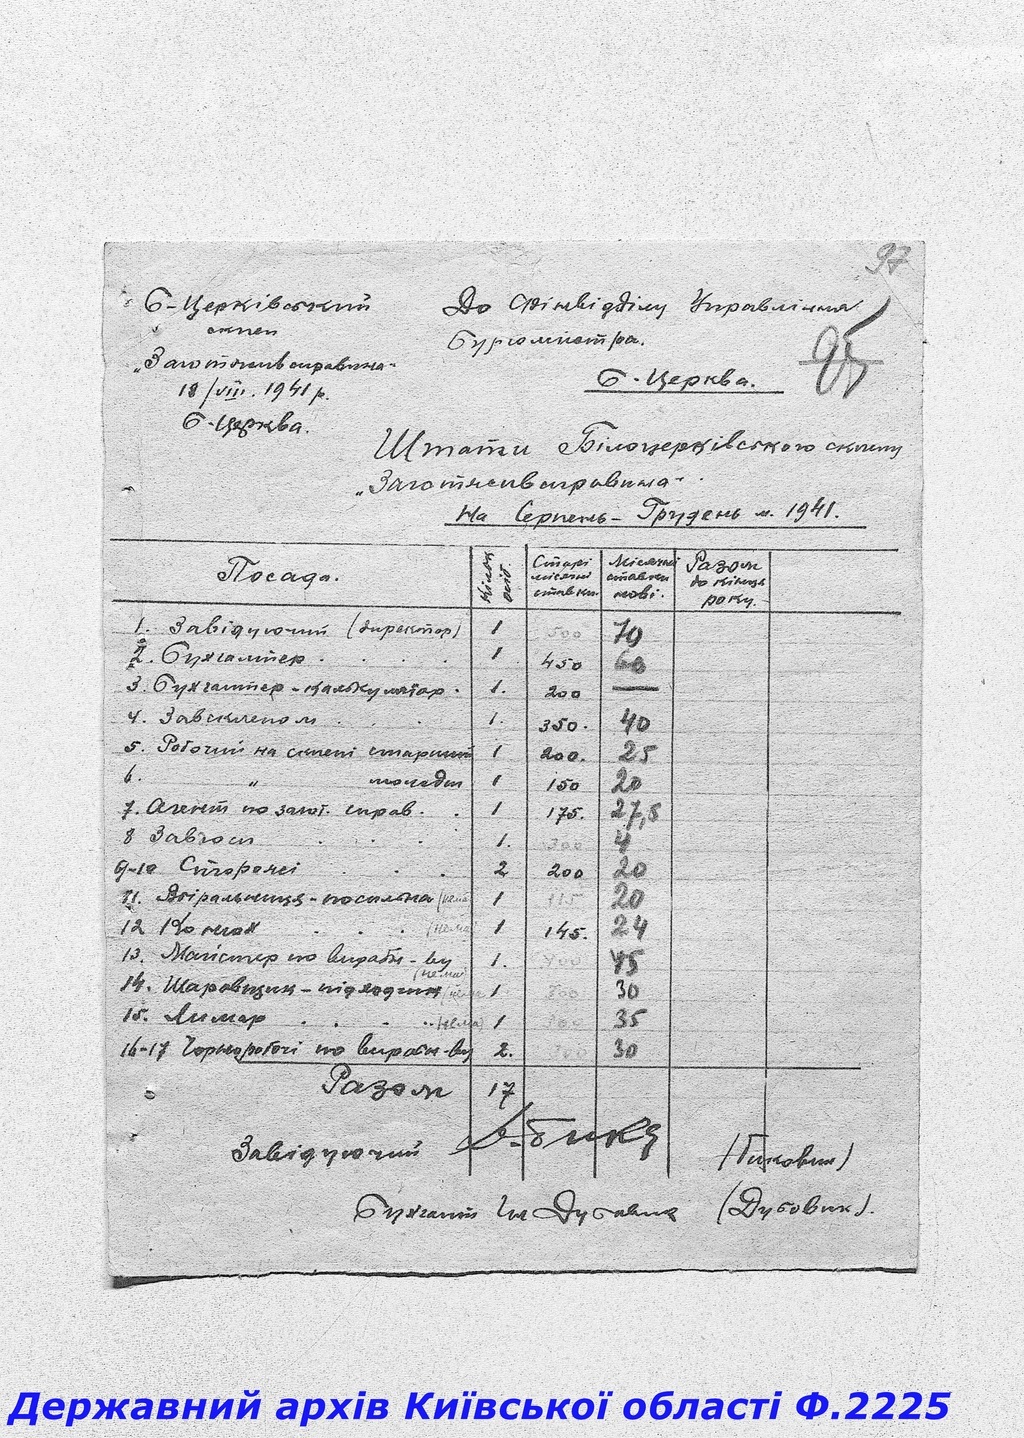 97
Б-Церківський
склеп
„Заготживсировина"
18/VIII. 1941 р.
Б-Церква.
До Фінвідділу Управління
Бургомістра.
Б-Церква.
95
Штати Білоцерківського склепу
„Заготживсировина"
На Серпень - Грудень м. 1941.
Посада. Кільк. осіб. Старі місячні ставки Місячні ставки нові. Разом до кінця року.
1. Завідуючий (директор) 1 500 70
2. Бухгалтер . . . . 1 450 60
3. Бухгалтер-калькулятор. 1. 200 —
4. Завсклепом . . . . 1. 350. 40
5. Робочий на склепі старший 1 200. 25
6. " молодш 1 150 20
7. Агент по загот. сиров. . 1 175. 27,5
8 Завгосп . . . . 1. 300 4
9-10 Сторожі . . . . 2 200 20
11. Вбіральниця-посильна (нема) 1 115 20
12 Конюх . . . (нема) 1 145. 24
13. Магістер по виробн-ву (нема) 1. 400 45
14. Шаровщик - підходчик (нема) 1 30
15. Лимар . . . . (нема) 1 300 35
16-17 Чорноробочі по виробн-ву 2. 300 30
Разом 17
Завідуючий (Биковим)
Бухгалт (Дубовик).
Державний архів Київської області Ф.2225